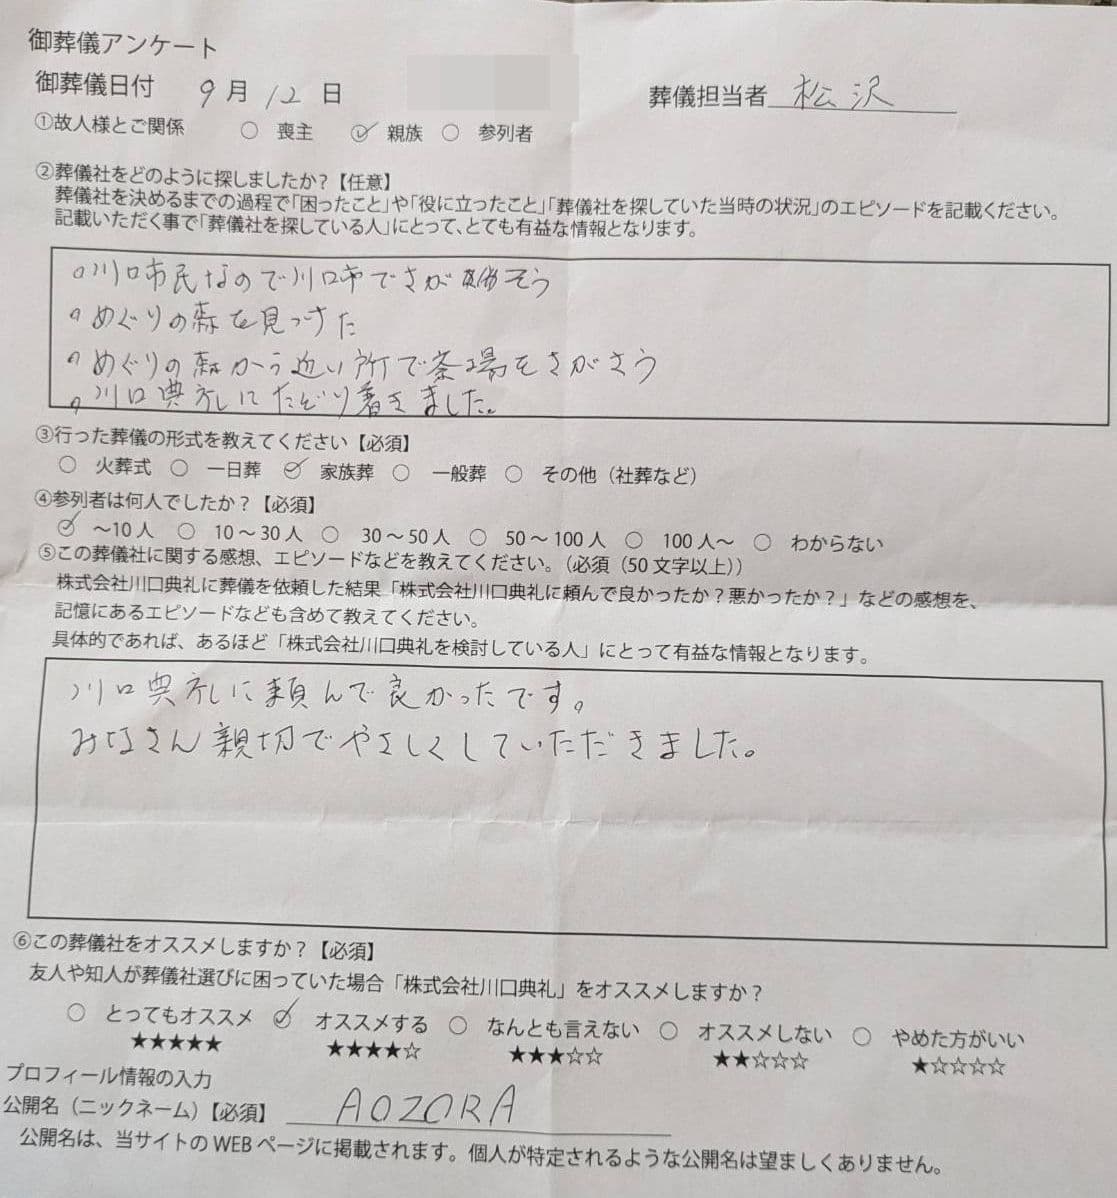 御葬儀アンケート
御葬儀日付 9月12日 葬儀担当者 松沢
①故人様とご関係 ○ 喪主 ○ 親族 ○ 参列者
②葬儀社をどのように探しましたか？【任意】
葬儀社を決めるまでの過程で「困ったこと」や「役に立ったこと」「葬儀社を探していた当時の状況」のエピソードを記載ください。
記載いただく事で「葬儀社を探している人」にとって、とても有益な情報となります。
川口市民なので川口市でさがそう
めぐりの森を見つけた
めぐりの森から近い所で斎場をさがそう
川口典礼にたどり着きました。
③行った葬儀の形式を教えてください【必須】
○ 火葬式 ○ 一日葬 ○ 家族葬 ○ 一般葬 ○ その他（社葬など）
④参列者は何人でしたか？【必須】
○ ～10人 ○ 10～30人 ○ 30～50人 ○ 50～100人 ○ 100人～ ○ わからない
⑤この葬儀社に関する感想、エピソードなどを教えてください。（必須（50文字以上））
株式会社川口典礼に葬儀を依頼した結果「株式会社川口典礼に頼んで良かったか？悪かったか？」などの感想を、
記憶にあるエピソードなども含めて教えてください。
具体的であれば、あるほど「株式会社川口典礼を検討している人」にとって有益な情報となります。
川口典礼に頼んで良かったです。
みなさん親切でやさしくしていただきました。
⑥この葬儀社をオススメしますか？【必須】
友人や知人が葬儀社選びに困っていた場合「株式会社川口典礼」をオススメしますか？
○ とってもオススメ ○ オススメする ○ なんとも言えない ○ オススメしない ○ やめた方がいい
★★★★★ ★★★★☆ ★★★☆☆ ★★☆☆☆ ★☆☆☆☆
プロフィール情報の入力
公開名（ニックネーム）【必須】 AOZORA
公開名は、当サイトのWEBページに掲載されます。個人が特定されるような公開名は望ましくありません。